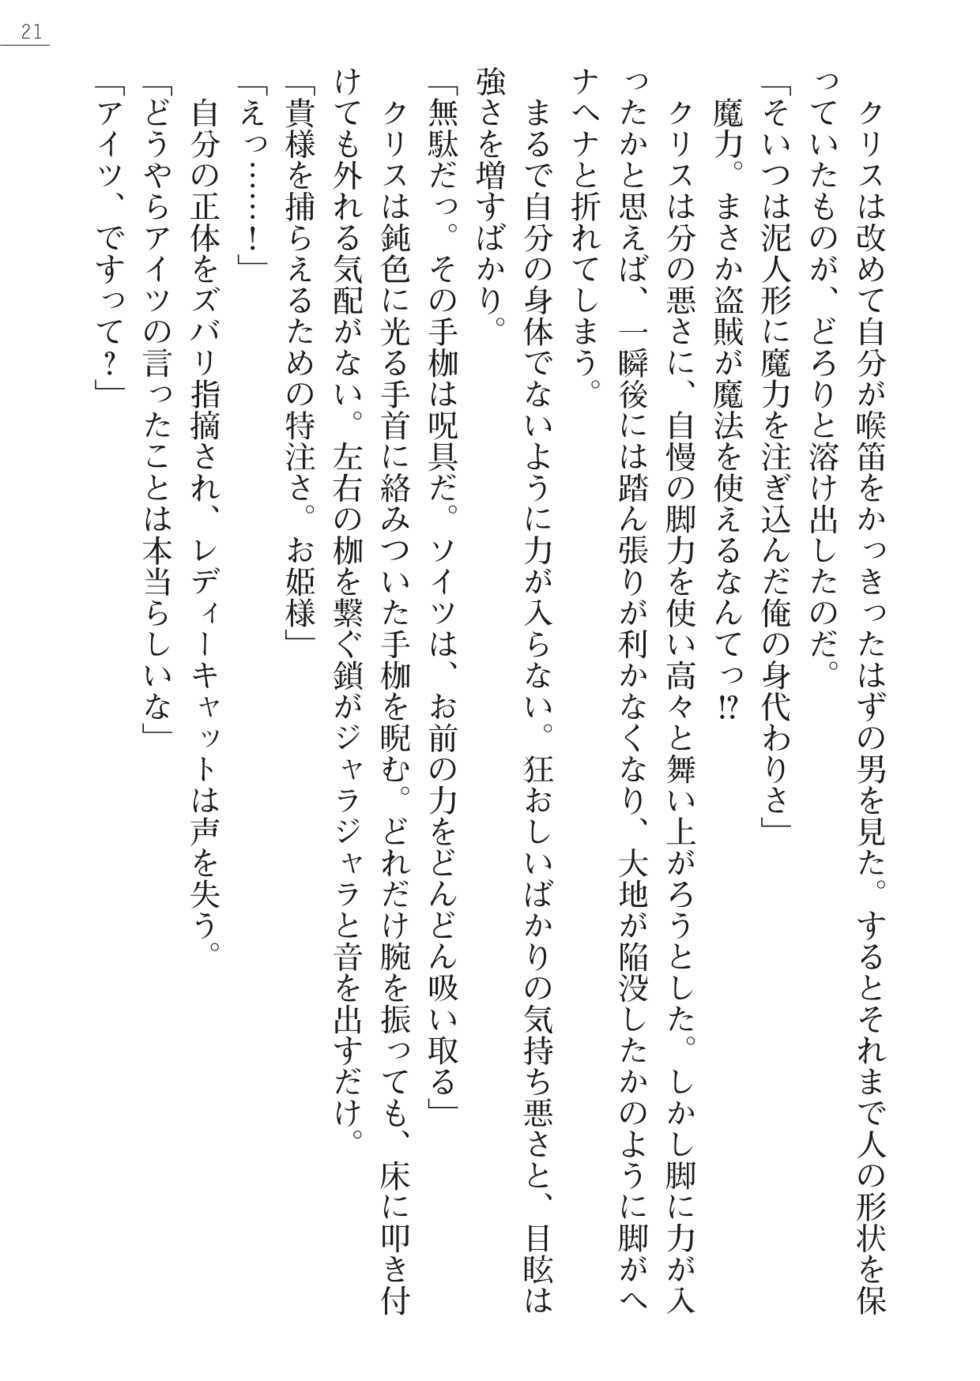 21
クリスは改めて自分が喉笛をかっきったはずの男を見た。するとそれまで人の形状を保
っていたものが、どろりと溶け出したのだ。
「そいつは泥人形に魔力を注ぎ込んだ俺の身代わりさ」
魔力。まさか盗賊が魔法を使えるなんてっ!?
クリスは分の悪さに、自慢の脚力を使い高々と舞い上がろうとした。しかし脚に力が入
ったかと思えば、一瞬後には踏ん張りが利かなくなり、大地が陥没したかのように脚がヘ
ナヘナと折れてしまう。
まるで自分の身体でないように力が入らない。狂おしいばかりの気持ち悪さと、目眩は
強さを増すばかり。
「無駄だっ。その手枷は呪具だ。ソイツは、お前の力をどんどん吸い取る」
クリスは鈍色に光る手首に絡みついた手枷を睨む。どれだけ腕を振っても、床に叩き付
けても外れる気配がない。左右の枷を繋ぐ鎖がジャラジャラと音を出すだけ。
「貴様を捕らえるための特注さ。お姫様」
「えっ……！」
自分の正体をズバリ指摘され、レディーキャットは声を失う。
「どうやらアイツの言ったことは本当らしいな」
「アイツ、ですって？」